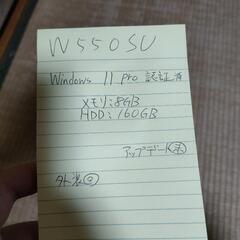 W550SU
Windows 11 Pro 認証済
メモリ:8GB
HDD:160GB
アップデート未
外装◎